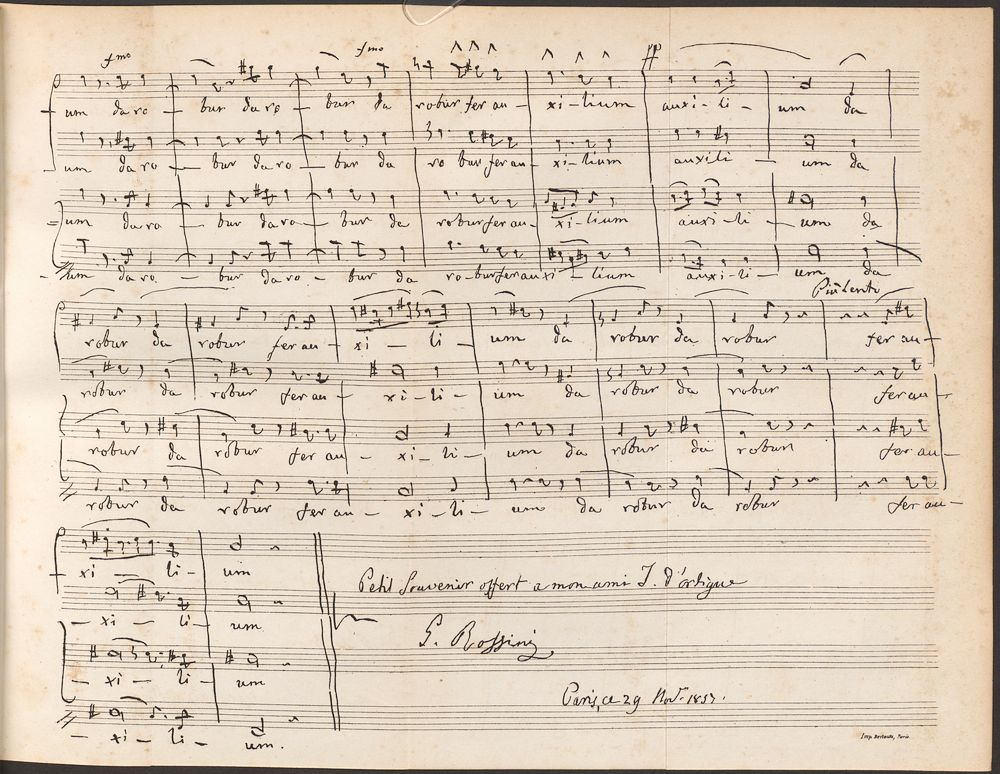 fmo fmo ff
um da ro – bur da ro – bur da robur fer au – xi – lium auxi – li – um da
um da ro – bur da ro – bur da ro bur fer au – xi – lium auxili – um da
um da ro – bur da ro – bur da robur fer au – xi – lium auxi – li – um da
um da ro – bur da ro – bur da ro – bur fer auxi – lium auxi – li – um da
Più Lento
robur da robur fer au – xi – li – um da robur da robur fer au –
robur da robur fer au – xi – li – um da robur da robur fer au –
robur da robur fer au – xi – li – um da robur da robur fer au –
robur da robur fer au – xi – li – um da robur da robur fer au –
xi – li – um
Petit Souvenir offert a mon ami J. d'ortigue
– xi – li – um
G. Rossini
– xi – li – um
Paris, ce 29 Nov. 1857.
– xi – li – um.
Imp. Bertauts, Paris